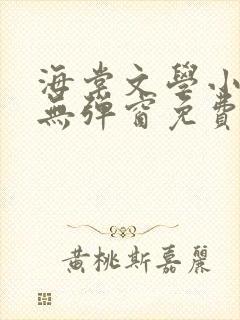 海棠文學小
無彈窗免費
黄桃斯嘉麗